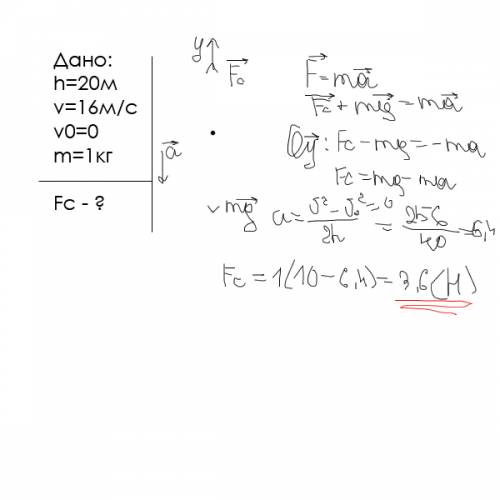 Дано:
h=20м
v=16м/с
v0=0
m=1кг
Fc - ?
a
y
Fc
mg
F=ma
Fc+mg=ma
Oy: Fc-mg=-ma
Fc=mg-ma
a=(v²-v₀²=0)/2h=256/40=6,4
Fc=1(10-6,4)=3,6(Н)